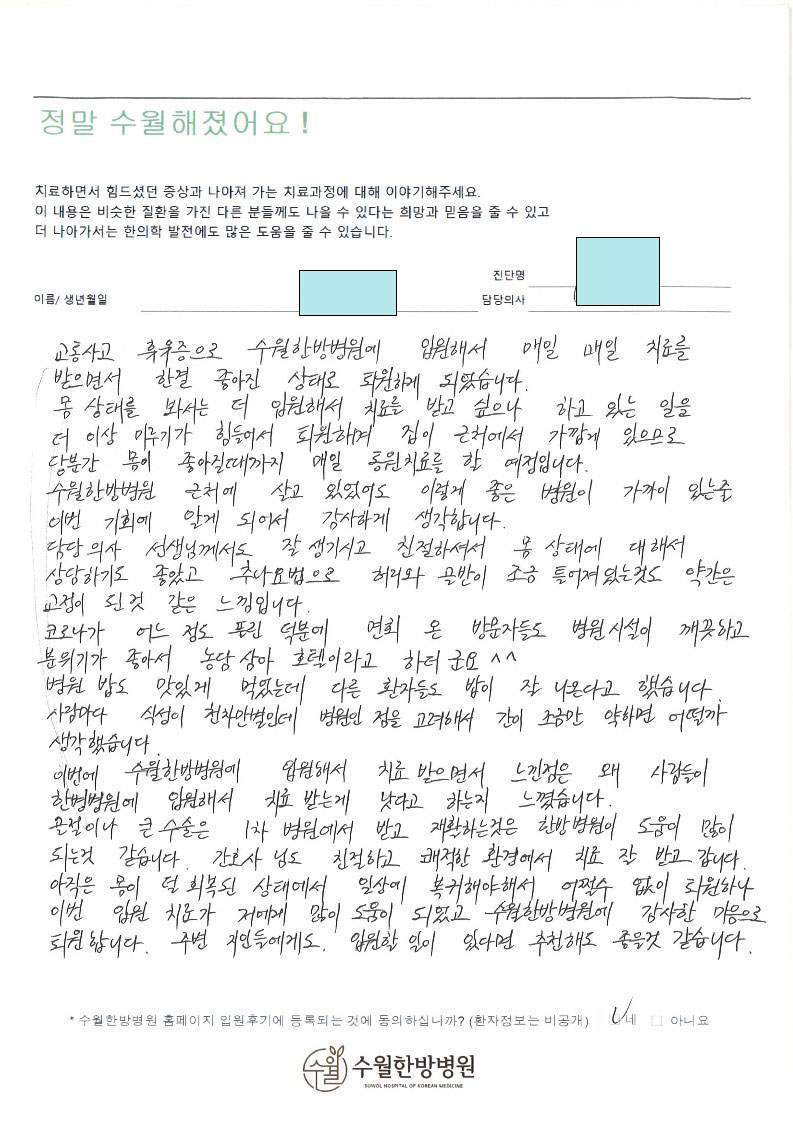 정말 수월해졌어요!
치료하면서 힘드셨던 증상과 나아져 가는 치료과정에 대해 이야기해주세요.
이 내용은 비슷한 질환을 가진 다른 분들께도 나을 수 있다는 희망과 믿음을 줄 수 있고
더 나아가서는 한의학 발전에도 많은 도움을 줄 수 있습니다.
진단명
이름/ 생년월일
담당의사
교통사고 휴유증으로 수월한방병원에 입원해서 매일 매일 치료를
받으면서 한결 좋아진 상태로 퇴원하게 되었습니다.
몸 상태를 봐서는 더 입원해서 치료를 받고 싶으나 하고 있는 일을
더 이상 미루기가 힘들어서 퇴원하며 집이 근처에서 가깝게 있으므로
당분간 몸이 좋아질때까지 매일 통원치료를 할 예정입니다.
수월한방병원 근처에 살고 있었어도 이렇게 좋은 병원이 가까이 있는줄
이번 기회에 알게 되어서 감사하게 생각합니다.
담당의사 선생님께서도 잘 생기시고 친절하셔서 몸 상태에 대해서
상담하기도 좋았고 추나요법으로 허리와 골반이 조금 틀어져있는것도 약간은
교정이 된것 같은 느낌입니다.
코로나가 어느 정도 풀린 덕분에 면회 온 방문자들도 병원시설이 깨끗하고
분위기가 좋아서 농담삼아 호텔이라고 하더군요 ^^
병원 밥도 맛있게 먹었는데 다른 환자들도 밥이 잘 나온다고 했습니다.
사람마다 식성이 천차만별인데 병원인 점을 고려해서 간이 조금만 약하면 어떨까
생각했습니다.
이번에 수월한방병원에 입원해서 치료 받으면서 느낀점은 왜 사람들이
한방병원에 입원해서 치료 받는게 낫다고 하는지 느꼈습니다.
골절이나 큰 수술은 1차 병원에서 받고 재활하는것은 한방병원이 도움이 많이
되는것 같습니다. 간호사 님도 친절하고 쾌적한 환경에서 치료 잘 받고 갑니다.
아직은 몸이 덜 회복된 상태에서 일상에 복귀해야해서 어쩔수 없이 퇴원하나
이번 입원 치료가 저에게 많이 도움이 되었고 수월한방병원에 감사한 마음으로
퇴원합니다. 주변 지인들에게도. 입원할 일이 있다면 추천해도 좋을것 같습니다.
* 수월한방병원 홈페이지 입원후기에 등록되는 것에 동의하십니까? (환자정보는 비공개) ☑ 네 □ 아니요
수월 수월한방병원
SUWOL HOSPITAL OF KOREAN MEDICINE